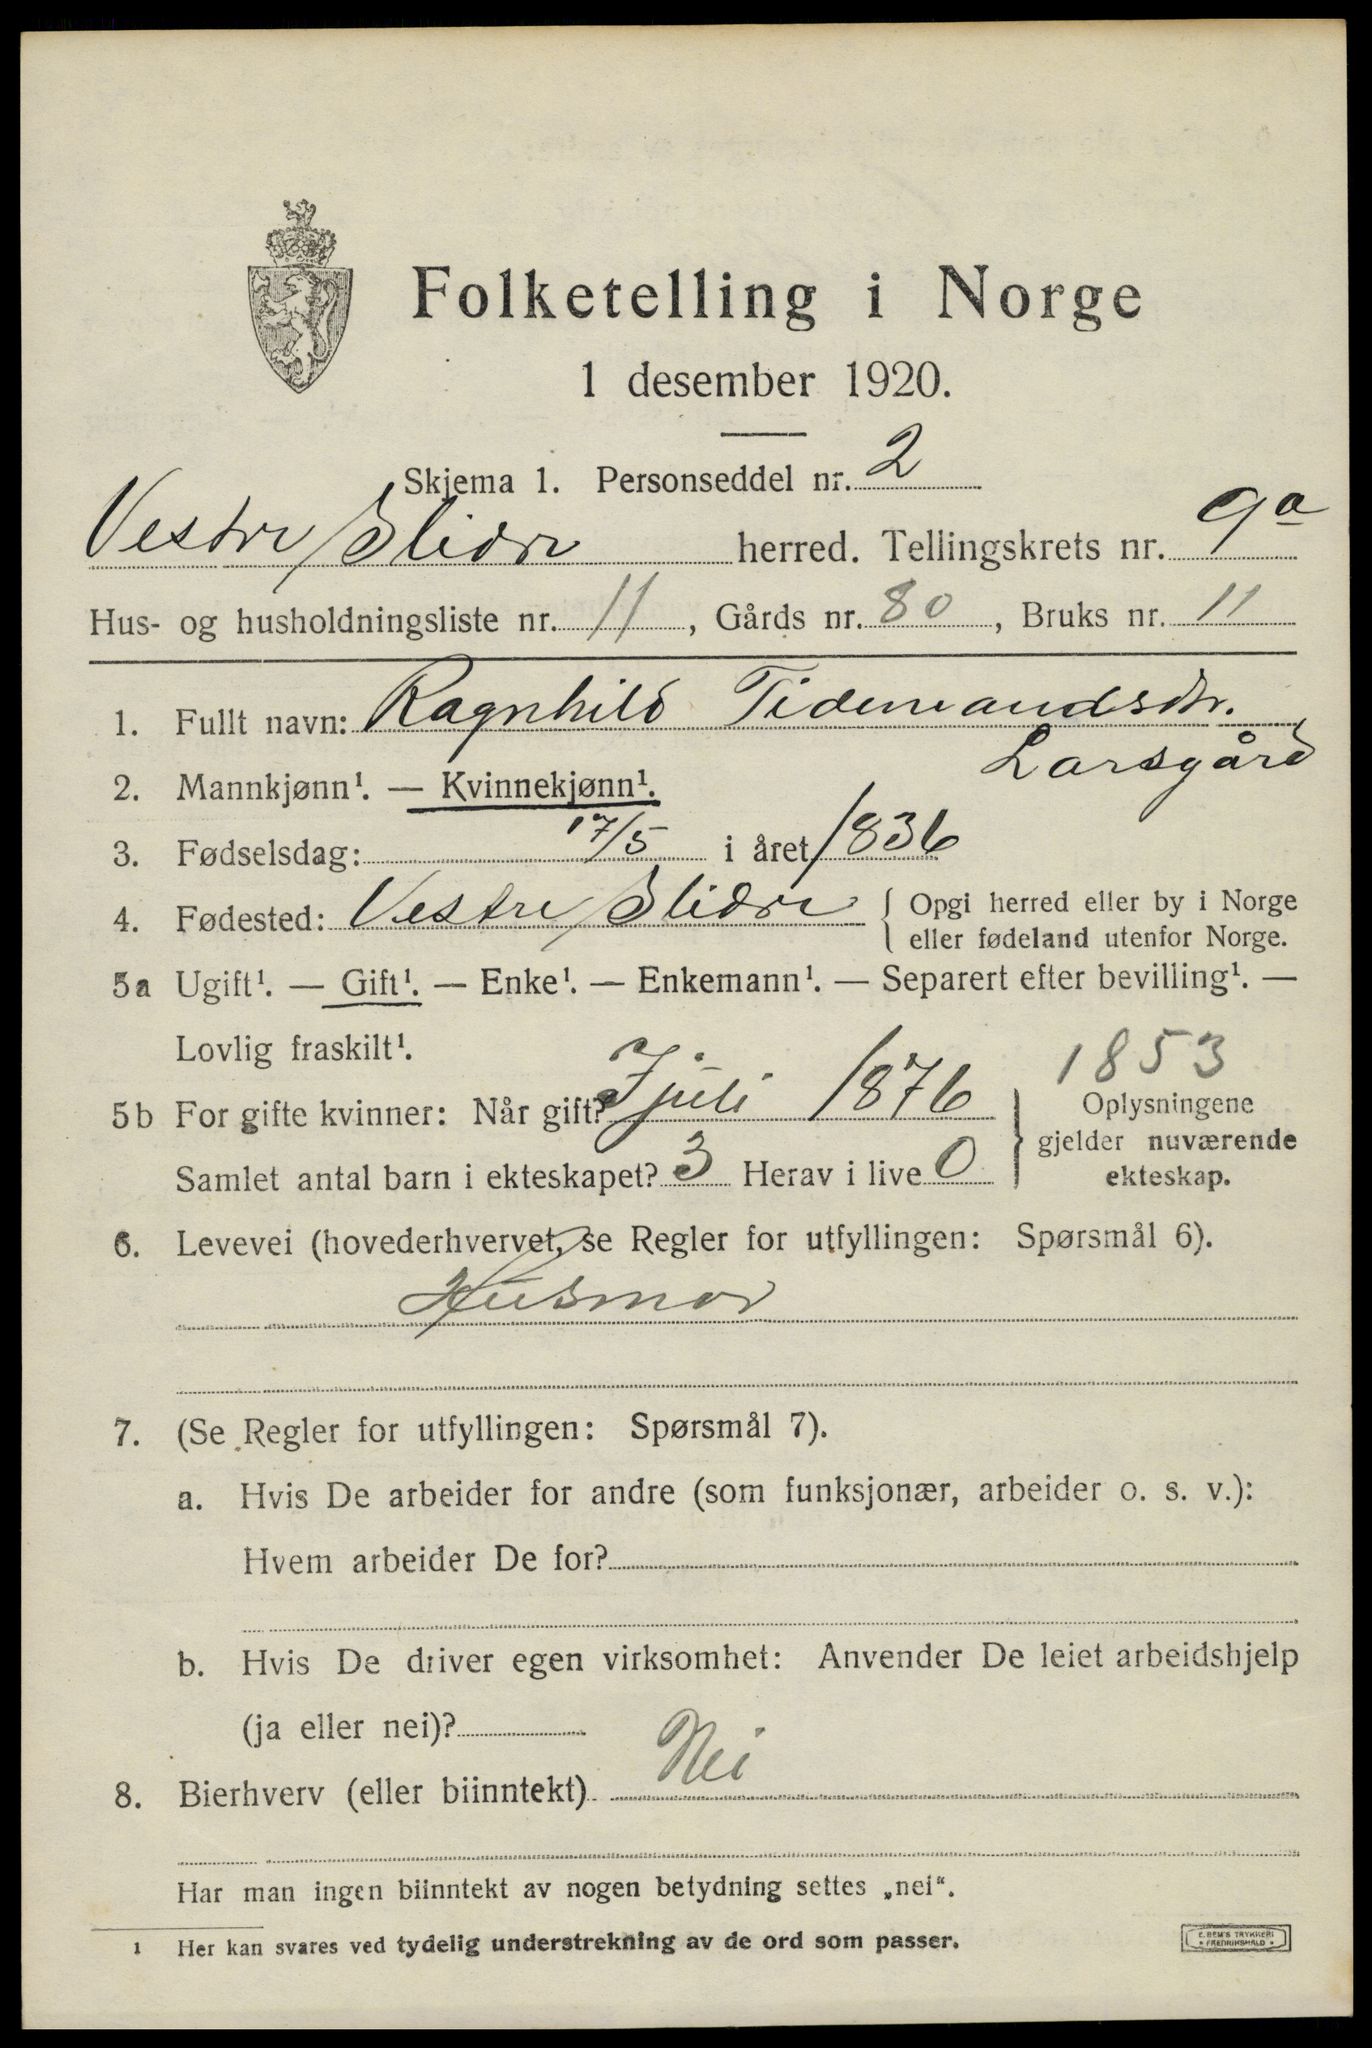 Folketelling i Norge
1 desember 1920.
Skjema 1. Personseddel nr. 2
Vestre Slidre herred. Tellingskrets nr. 9a
Hus- og husholdningsliste nr. 11, Gårds nr. 80, Bruks nr. 11
1. Fullt navn: Ragnhild Tidemandsdtr.
Larsgård
2. Mannkjønn¹. — Kvinnekjønn¹.
3. Fødselsdag: 17/5 i året 1836
4. Fødested: Vestre Slidre { Opgi herred eller by i Norge
eller fødeland utenfor Norge.
5a Ugift¹. — Gift¹. — Enke¹. — Enkemann¹. — Separert efter bevilling¹. —
Lovlig fraskilt¹.
1853
5b For gifte kvinner: Når gift? I juli 1876 } Oplysningene
gjelder nuværende
Samlet antal barn i ekteskapet? 3 Herav i live 0 ekteskap.
6. Levevei (hovederhvervet, se Regler for utfyllingen: Spørsmål 6).
Husmor
7. (Se Regler for utfyllingen: Spørsmål 7).
a. Hvis De arbeider for andre (som funksjonær, arbeider o. s. v.):
Hvem arbeider De for?
b. Hvis De driver egen virksomhet: Anvender De leiet arbeidshjelp
(ja eller nei)?
8. Bierhverv (eller biinntekt) Nei
Har man ingen biinntekt av nogen betydning settes „nei“.
1 Her kan svares ved tydelig understrekning av de ord som passer.
E. SEM'S TRYKKERI
• FREDRIKSHALD •